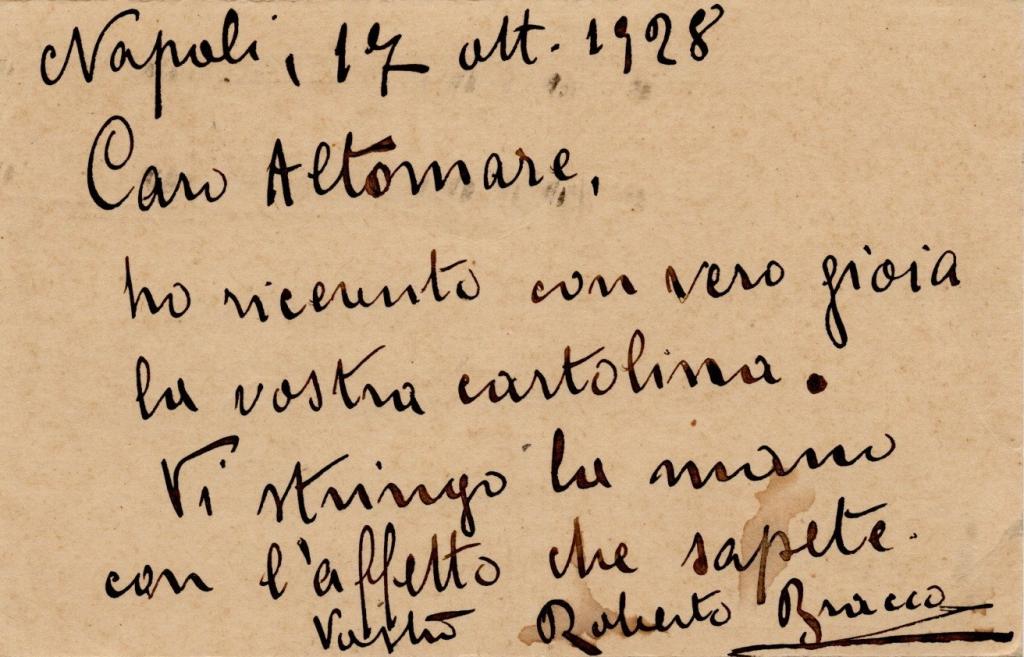 Napoli, 17 ott. 1928
Caro Altomare,
ho ricevuto con vero gioia
la vostra cartolina.
Vi stringo la mano
con l'affetto che sapete.
Vostro Roberto Bracco